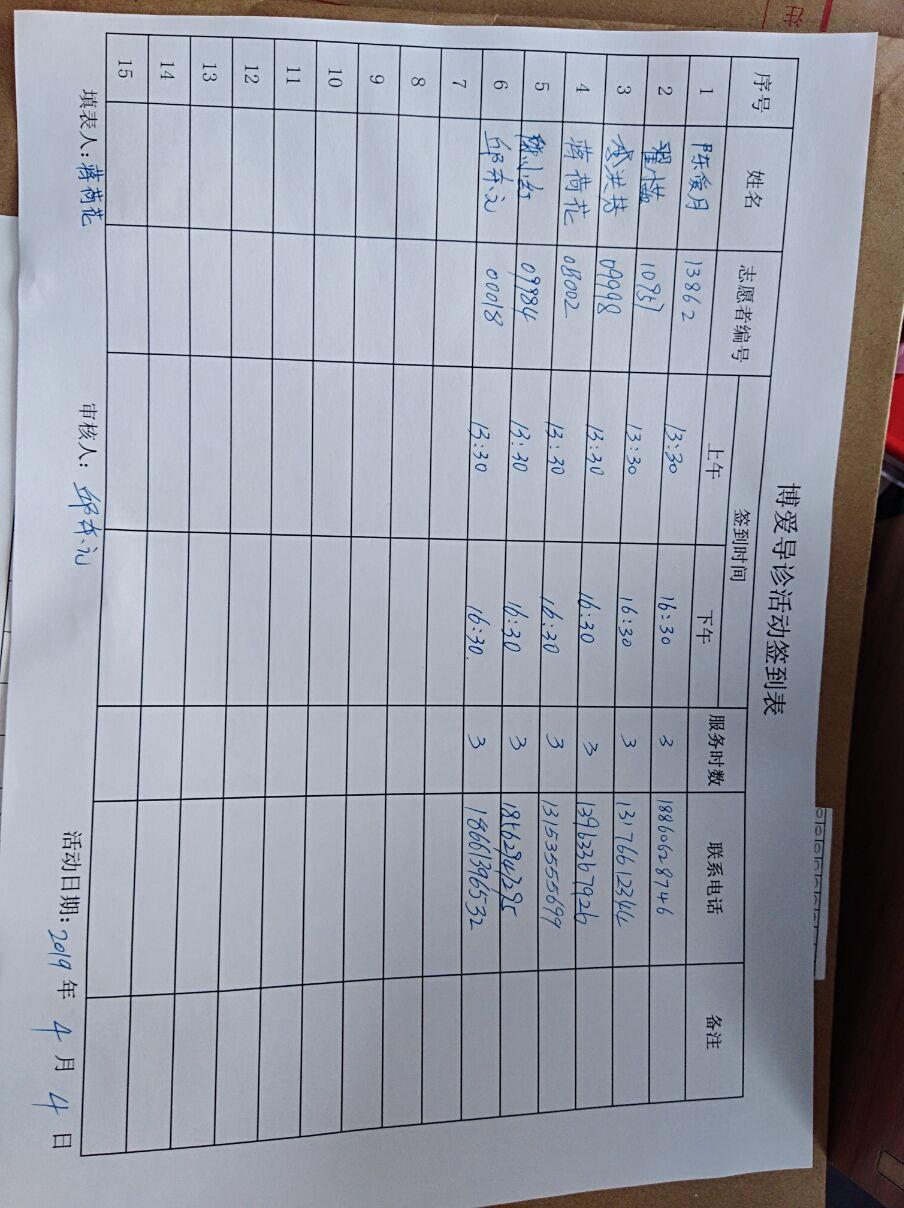 博爱导诊活动签到表
序号 姓名 志愿者编号 签到时间 服务时数 联系电话 备注
上午 下午
1 陈俊月 13862 13:30 16:30 3 18860628746
2 10951 13:30 16:30 3 13176612344
3 09998 13:30 16:30 3 13963367926
4 蒋荷花 08002 13:30 16:30 3 13153555699
5 09984 13:30 16:30 3 18562947295
6 邱亦元 00018 13:30 16:30. 3 18661396532
7
8
9
10
11
12
13
14
15
填表人：蒋荷花 审核人：邱亦元 活动日期：2019年4月4日